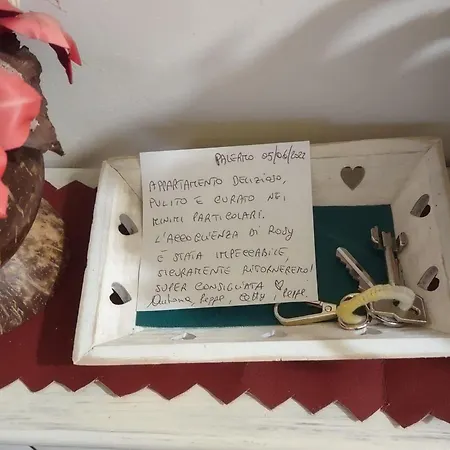 PALERMO 05/06/2022
APPARTAMENTO DELIZIOSO,
PULITO E CURATO NEI
MINIMI PARTICOLARI.
L'ACCOGLIENZA DI ROSY
E STATA IMPECCABILE,
SICURAMENTE RITORNEREMO!
SUPER CONSIGLIATA ♡
Peppe, , Peppe.